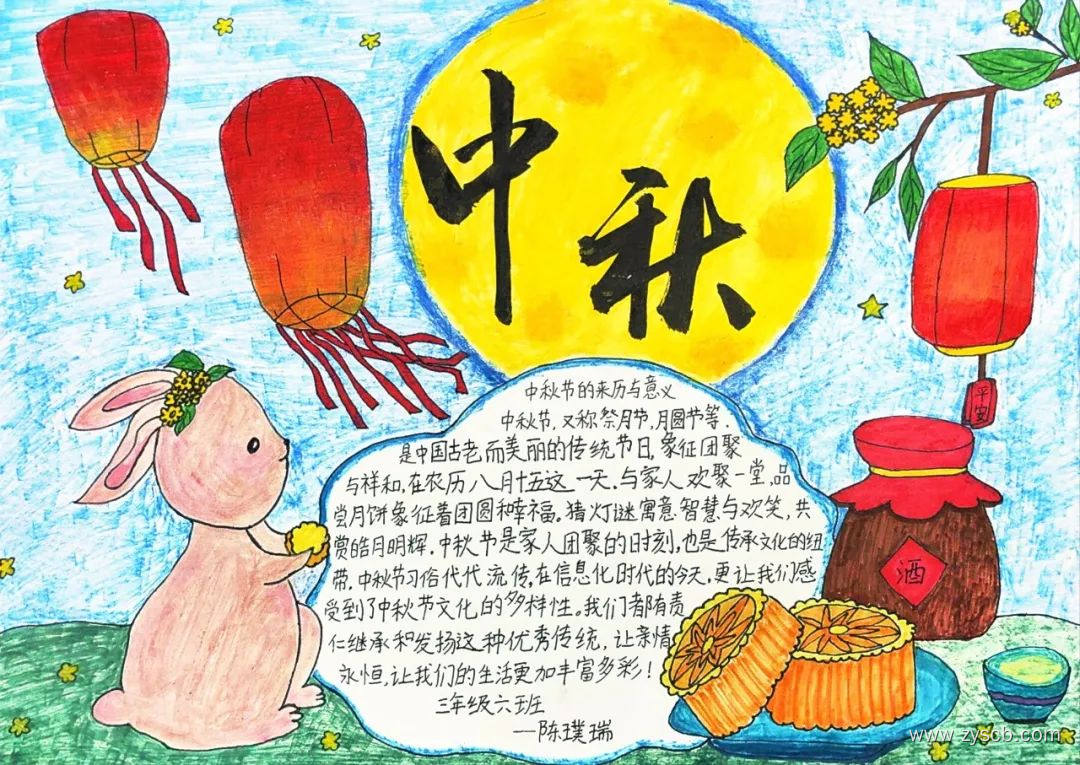 中秋
中秋节的来历与意义
中秋节,又称祭月节,月圆节等.
是中国古老而美丽的传统节日,象征团聚
与祥和.在农历八月十五这一天.与家人欢聚一堂,品
尝月饼象征着团圆和幸福。猜灯谜寓意智慧与欢笑,共
赏皓月明辉.中秋节是家人团聚的时刻,也是传承文化的纽
带.中秋节习俗代代流传,在信息化时代的今天,更让我们感
受到了中秋节文化的多样性。我们都有责
仁继承和发扬这种优秀传统,让亲情
永恒,让我们的生活更加丰富多彩!
三年级六班
—陈璞瑞
平安
酒
www.zyscb.com